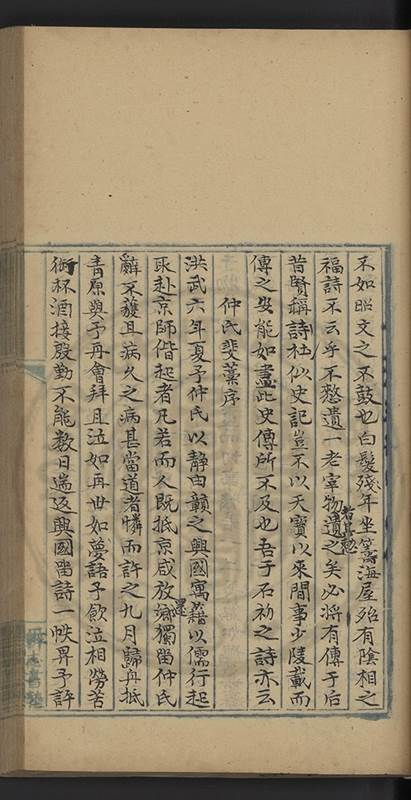 不如昭文之不鼓也白髮殘年坐籌海屋殆有陰相之
福詩不云乎不憗遺一老宰物遺之矣必將有傳于后
者其憗
昔賢稱詩杜似史記豈不以天寶以來間事少陵載而
傳之安能如盡此史傳所不及也吾于石初之詩亦云
仲氏斐藁序
洪武六年夏予仲氏以靜由贛之興國寓藉以儒行起
取赴京師偕起者凡若而人既抵京咸放還鄉獨留仲氏
辭不獲且病久之病甚當道者憐而許之九月歸再抵
青原與予再會拜且泣如再世如夢語予飲泣相勞苦
銜杯酒接殷勤不能數日遄返興國留詩一帙畀予評